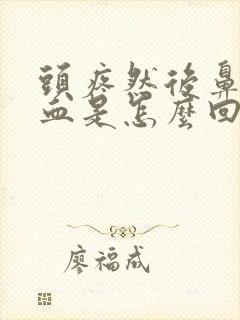 頭疼然後鼻
血是怎麼回
廖福成